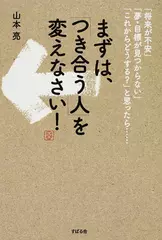 「将来が不安」
「夢・目標が見つからない」
「これからどうする？」と思ったら……
まずは、
つき合う人を
変えなさい！
山本 亮
すばる舎